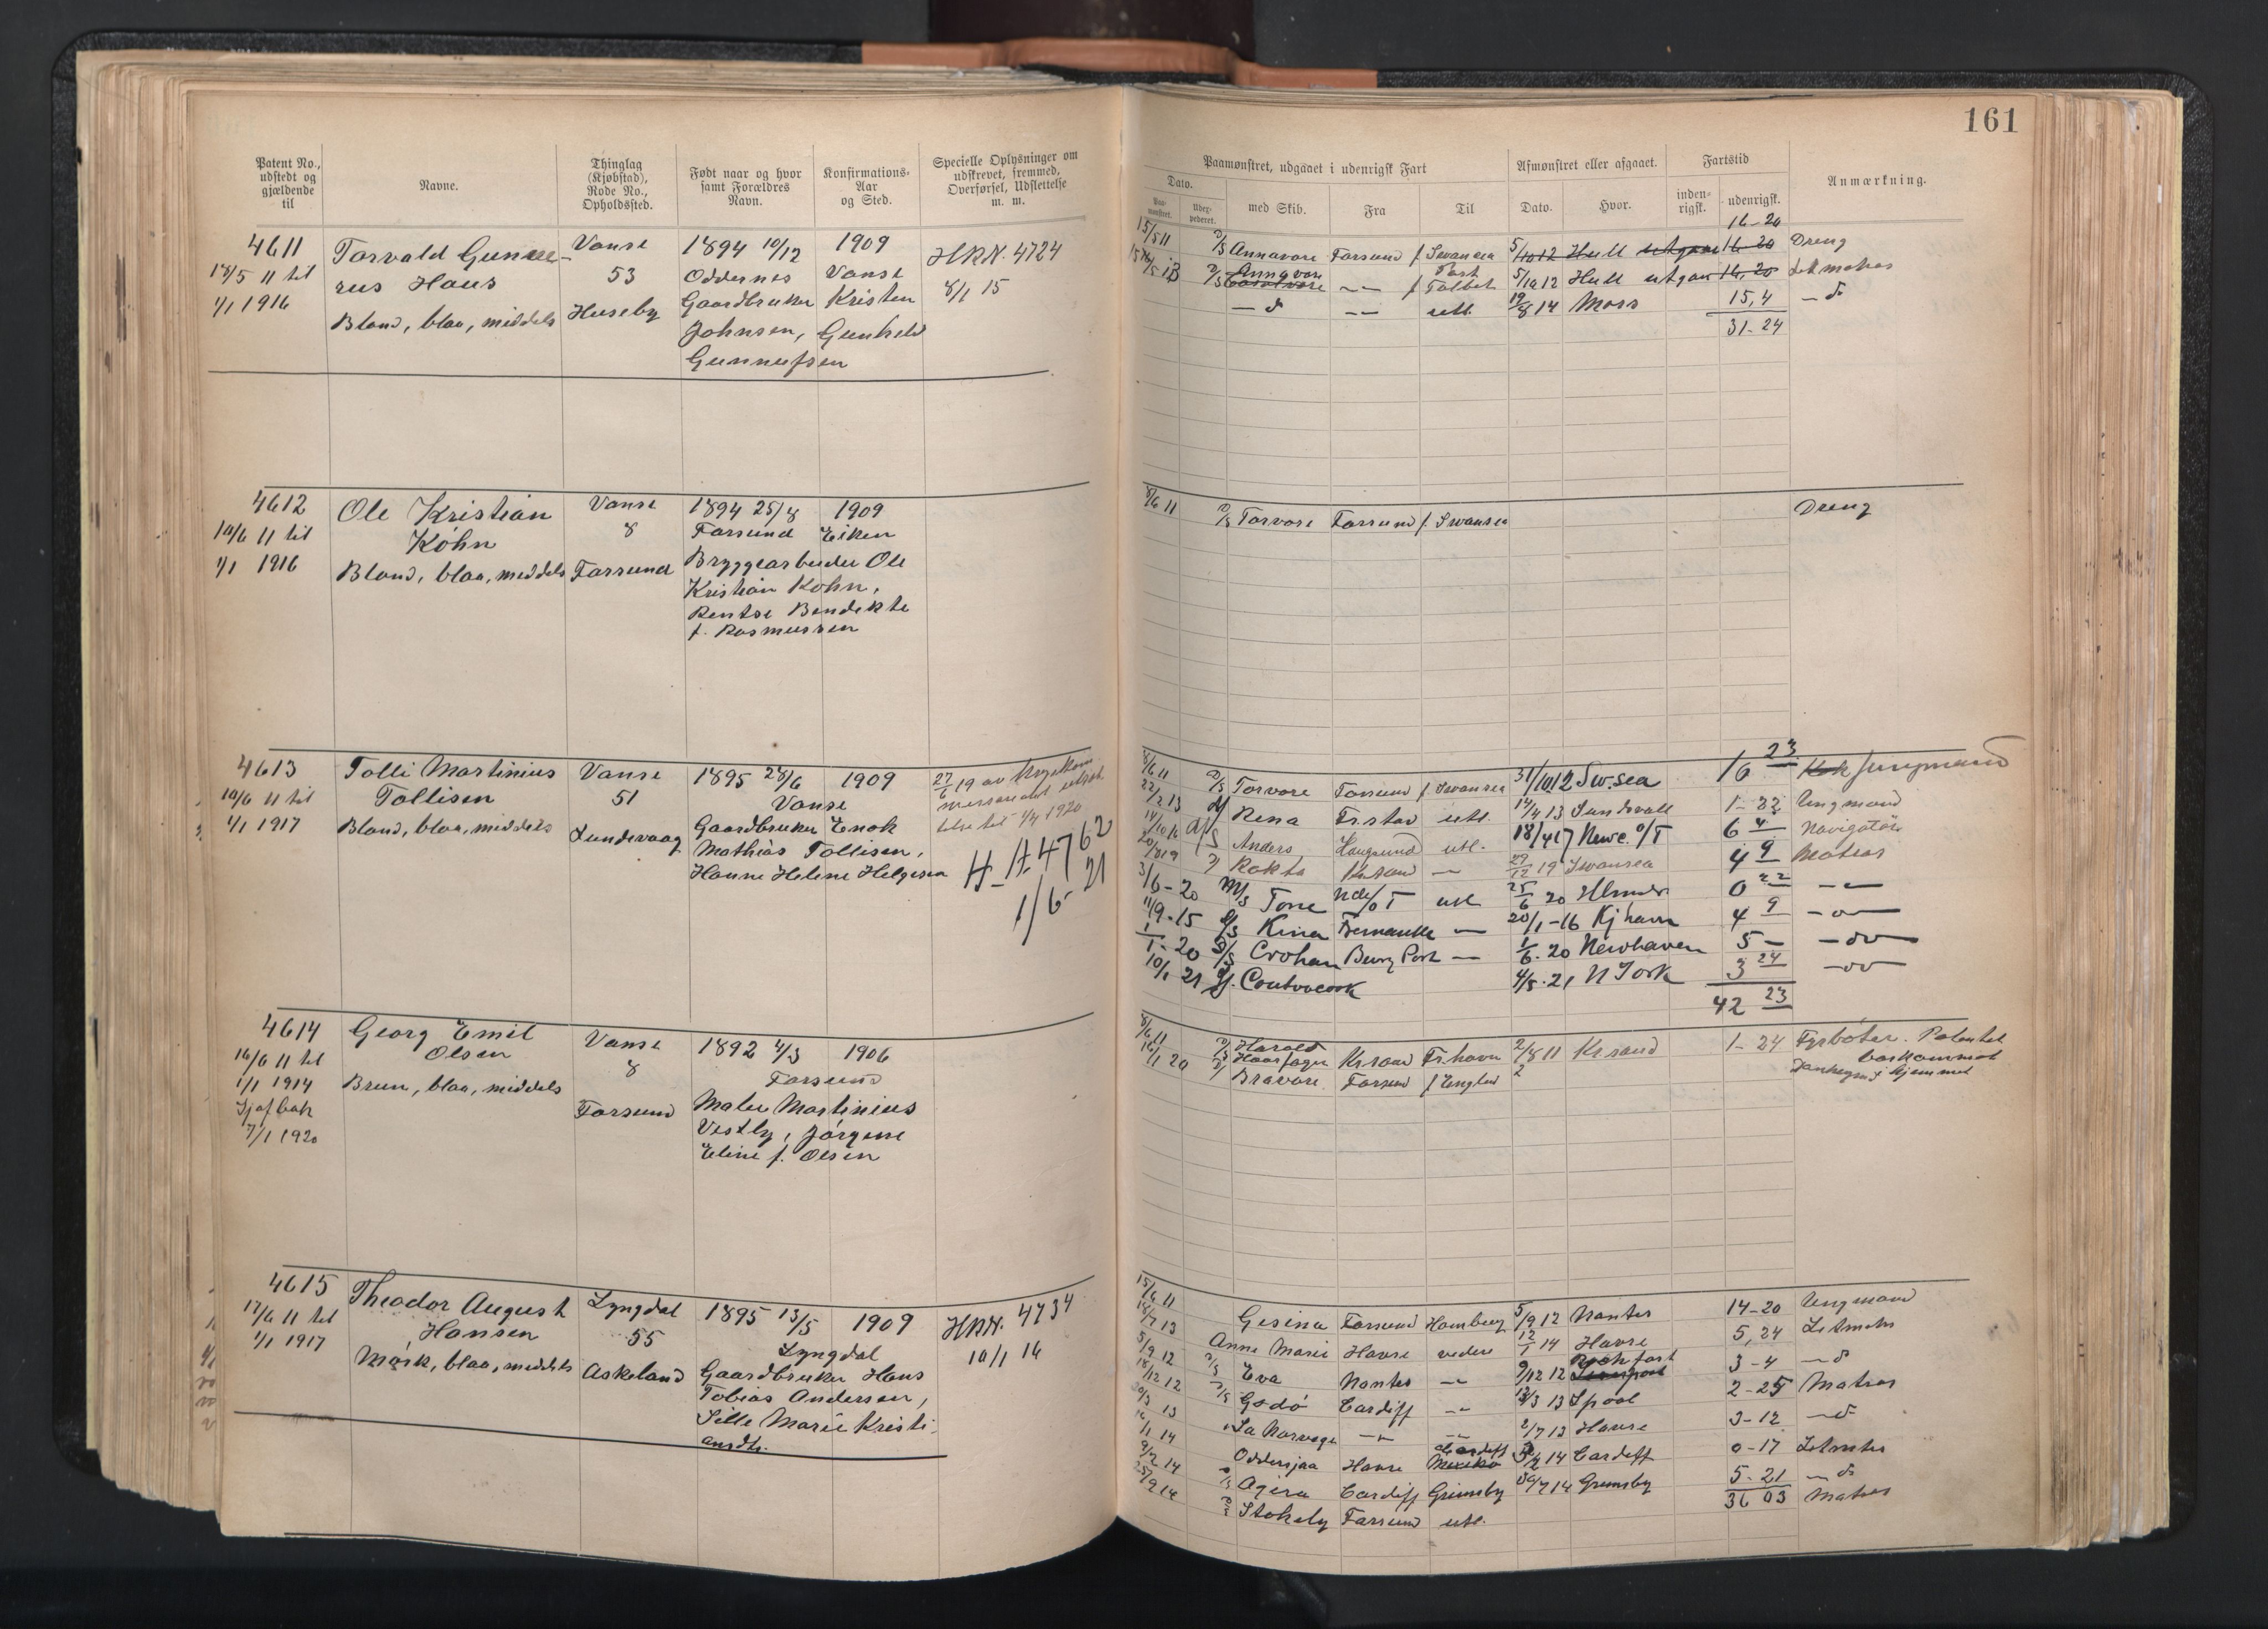 161
Patent No., udstedt og gjældende til
Navne.
Thinglag (Kjøbstad), Rode No., Opholdssted.
Født naar og hvor samt Forældres Navn.
Konfirmations-Aar og Sted.
Specielle Oplysninger om udskrevet, fremmed, Overførsel, Udslettelse m. m.
Paamønstret, udgaaet i udenrigsk Fart
Afmønstret eller afgaaet.
Fartstid
Anmærkning.
Dato.
med Skib.
Fra
Til
Dato.
Hvor.
inden-rigsk.
udenrigsk.
4611
18/5 11 til
1/1 1916
Torvald Gunne-
rus Haus
Blond, blaa, middels
Vanse
53
Huseby
1894 10/12 1909
Oddernes Vanse
Gaardbruker Kristen
Johnsen, Gunhild
Gunnufsen
HRN. 4724
8/1 15
16-20
15/5 11 D/S Annavore Farsund f Swansea 5/10 12 Hull utgaar 16-20 Dreng
D/S Annavore — — f Port Talbot 5/10 12 Hull utgaar 16.20 Letmatros
— d — — utl. 19/8 14 Moss 15,4 — d
31-24
4612
10/6 11 til
1/1 1916
Ole Kristian
Kohn
Blond, blaa, middels
Vanse
8
Farsund
1894 25/8 1909
Farsund Eiken
Bryggearbeider Ole
Kristian Kohn,
Bentse Bendikte
f. Rasmussen
8/6 11 D/S Torvore Farsund f Swansea Dreng
4613
10/6 11 til
1/1 1917
Tolli Martinius
Tollisen
Blond, blaa, middels
Vanse
51
Lundevaag
1895 28/6 1909
Vanse
Gaardbruker Enok
Mathias Tollisen,
Hanne Helene Helgesen
27/6 19 av
1/4 1920
H.A 4762
1/6-21
8/6 11 D/S Torvore Farsund f Swansea 31/10 12 Sw.sea 16 23 Kok Jungmand
22/2 13 Rena Fr.stad utl. 14/4 13 Sundsvall 1- 22 Ungmand
14/10 16 Anders Haugesund utl. 18/4 17 Newc. o/T 6 4 Navigatör
20/8 19 Rokta Kr.sand — 29/12 19 Swansea 4 9 Matros
3/6-20 M/S Tone Ncle/o T utl 25/6 20 0 22 — —
11/9-15 S/S Kina Fremantle — 20/1-16 Kj havn 4 9 — o —
1/1-20 S/S Crohan Burry Port — 1/6.20 Newhaven 5 — — do —
10/1 21 4/5.21 N York 3 24 — do
42 23
4614
16/6 11 til
1/1 1914
7/1 1920
Georg Emil
Olsen
Brun, blaa, middels
Vanse
8
Farsund
1892 4/3 1906
Farsund
Maler Martinius
Vestby, Jørgine
Eline f. Olsen
8/6 11 D/S Harald Haarfager Kr.sand Fr.havn 2/8 11 Kr.sand 1- 24 Fyrbøter. Patentet
bortkommet
1/1 20 Bravore Farsund f England hjemmel
4615
17/6 11 til
1/1 1917
Theodor August
Hansen
Mørk, blaa, middels
Lyngdal
55
Askeland
1895 13/5 1909
Lyngdal
Gaardbruker Hans
Tobias Andersen,
Sille Marie Kristi-
ansdtr.
HRN. 4734
10/1 16
15/6 11 Gesina Farsund Hamburg 5/9 12 Nantes 14-20 Ungmand
14/7 13 Anne Marie Havre videre 12/1 14 Havre 5,24 Letmatr
5/9 12 D/S Eva Nantes — 9/12 12 Rochfort 3-4 — d
18/12 12 D/S Godø Cardiff — 13/3 13 Lpool 2-25 Matros
20/3 13 La Norvege — — 2/7 13 Havre 3-12 — d
1/1 14 Oddersjaa Havre Cardiff Mexiko 14 Cardiff 0-17 Letmatr
9/2 14 D/S Agira Cardiff Grimsby 30/7 14 Grimsby 5-21 — d
25/9 14 Stokely Farsund utl. 36 03 Matros